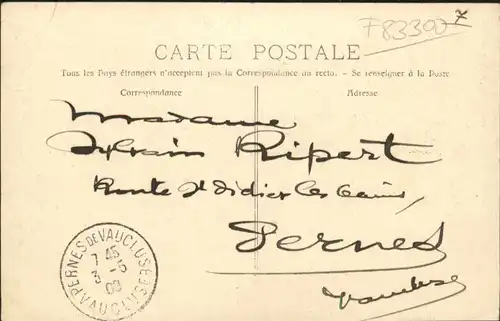 F83300 7
CARTE POSTALE
Tous les Pays étrangers n'acceptent pas la Correspondance au recto. - Se renseigner à la Poste
Correspondance
Adresse
Madame
Sylvain Ripert
Route St Didier les bains
Pernes
Vaucluse
PERNES DE VAUCLUSE
7 45
3 - 5
09
VAUCLUSE